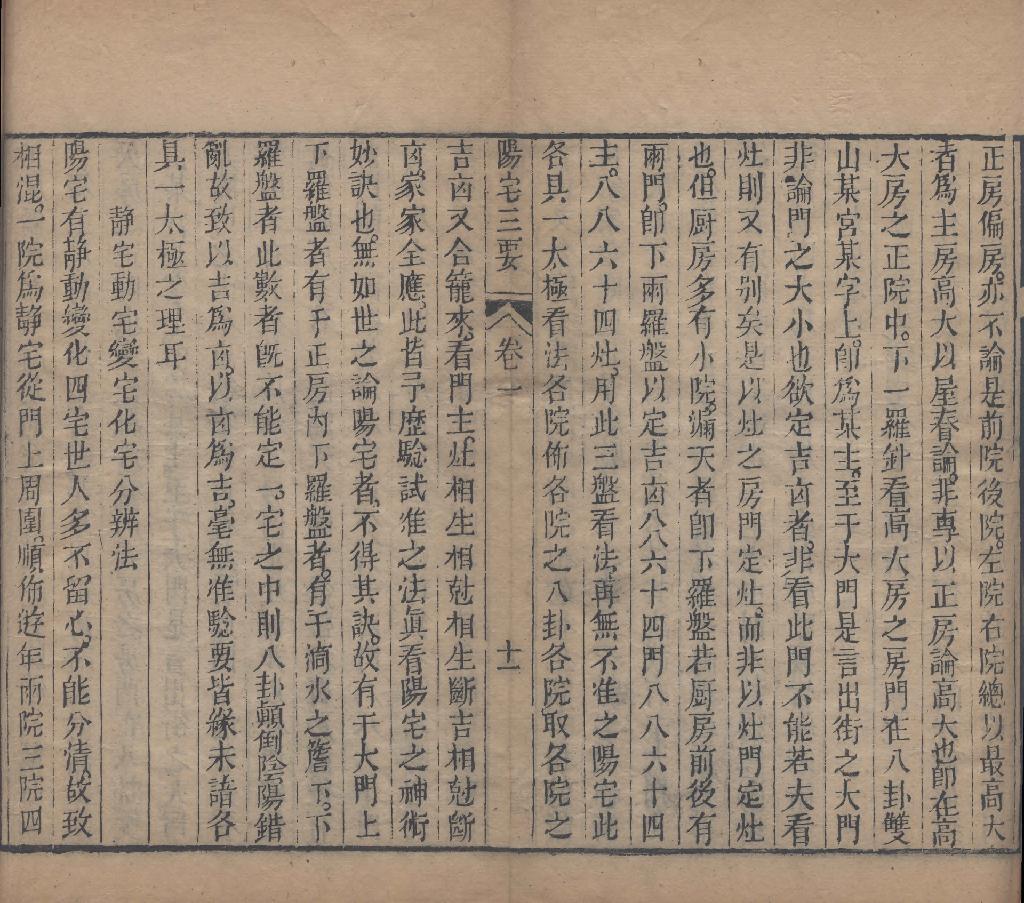 正房偏房。亦不論是前院後院。左院右院總以最高大
者爲主房高大以屋脊論。非專以正房論高大也即在高
大房之正院中。下一羅針看高大房之房門在八卦雙
山某宮某字上。即爲某主。至于大門是言出街之大門
非論門之大小也欲定吉凶者。非看此門不能若夫看
灶則又有别矣是以灶之房門定灶。而非以灶門定灶
也。但厨房多有小院。漏天者即下羅盤若厨房前後有
兩門。即下兩羅盤以定吉凶八八六十四門八八六十四
主。八八六十四灶。用此三盤看法。再無不准之陽宅此
各具一太極看法各院佈各院之八卦各院取各院之
陽宅三要 卷一 十一
吉凶又合籠來。看門主。灶相生相尅相生斷吉相尅斷
凶。家家全應。此皆予歷驗試准之法。眞看陽宅之神術
妙訣也。無如世之論陽宅者。不得其訣。故有于大門上
下羅盤者有于正房內下羅盤者。有于滴水之簷下。下
羅盤者此數者旣不能定一。宅之中則八卦顛倒陰陽錯
亂故致以吉爲凶。以凶爲吉。毫無准驗要皆緣未諳各
具一太極之理耳
静宅動宅變宅化宅分辨法
陽宅有静動變化四宅世人多不留心。不能分清。故致
相混。一院爲静宅從門上周圍。順佈遊年兩院三院四